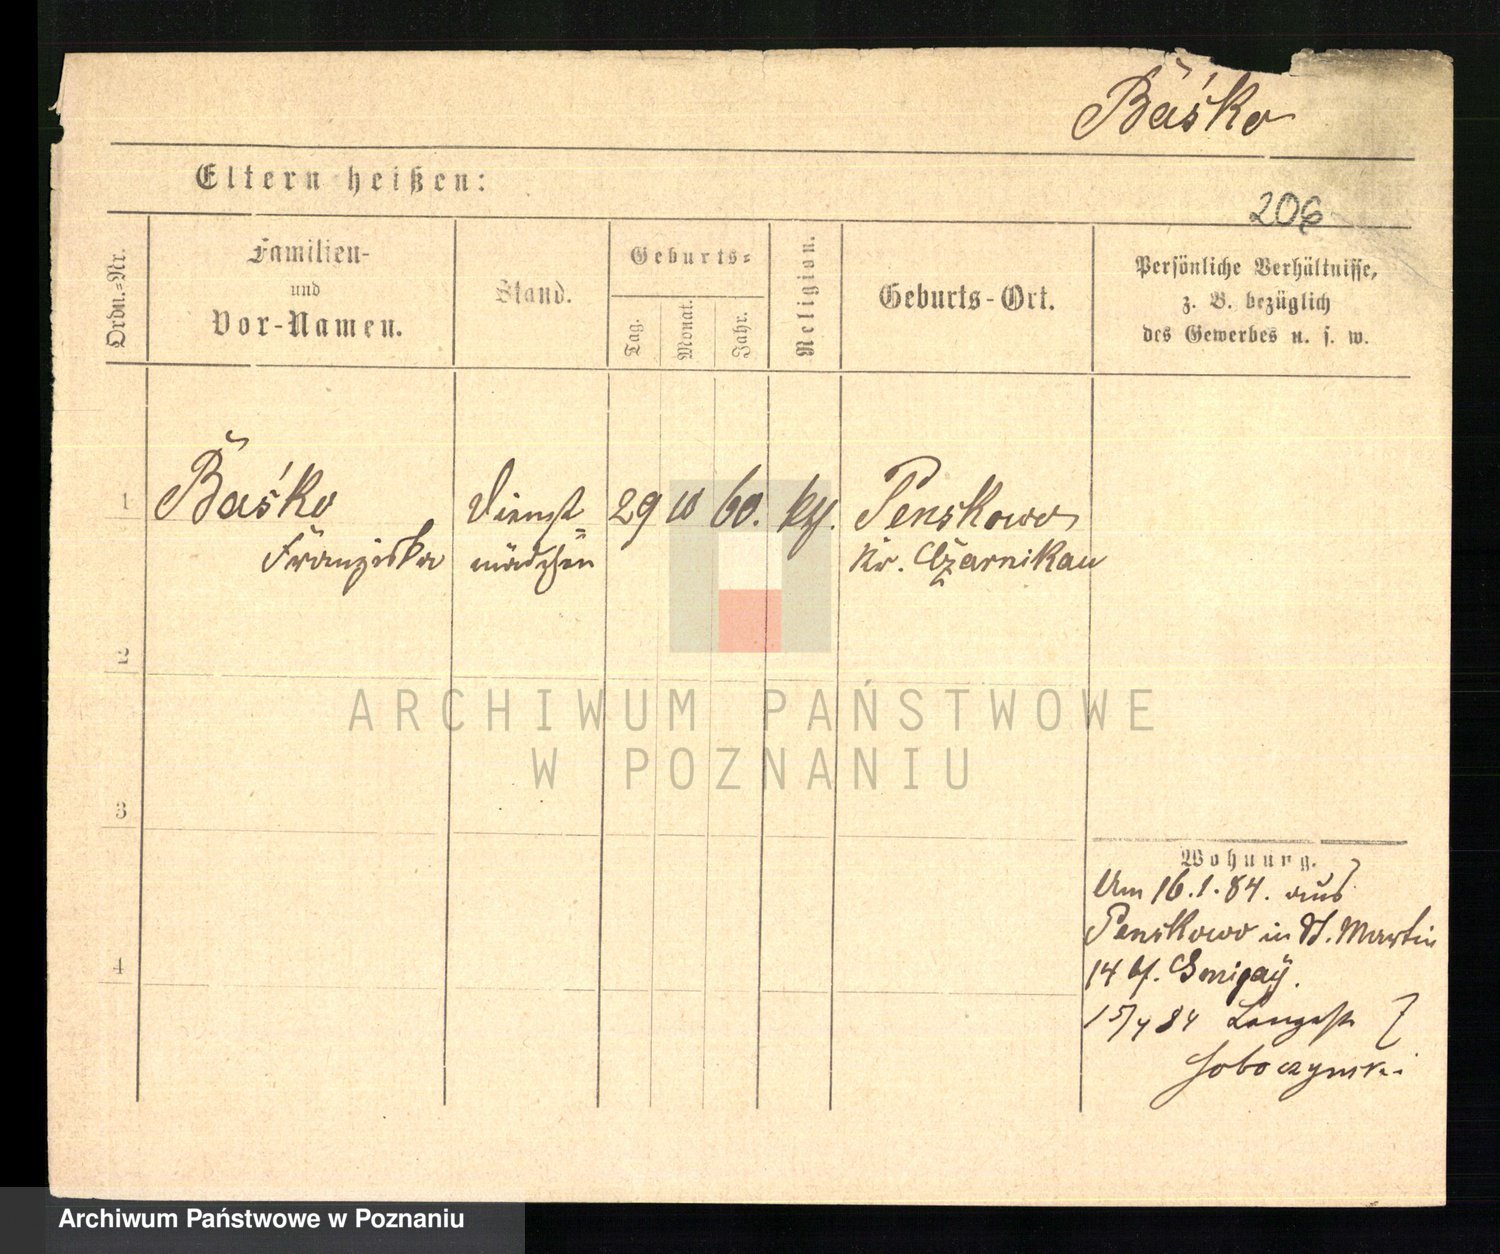 Baśko
Eltern heißen:
206
Ordn.-Nr.
Familien-
und
Vor-Namen.
Stand.
Geburts-
Tag.
Monat.
Jahr.
Religion.
Geburts-Ort.
Persönliche Verhältnisse,
z. B. bezüglich
des Gewerbes u. s. w.
1 Baśko Dienst 29 10 60. kth. Penskowo
Franziska mädchen Kr. Czarnikau
2
ARCHIWUM PAŃSTWOWE
W POZNANIU
3
Wohnung.
Um 16.1.84. aus
Penskowo in St. Martin
4
14 b/.
15/4 84 Langestr 7
Soboczynski
Archiwum Państwowe w Poznaniu